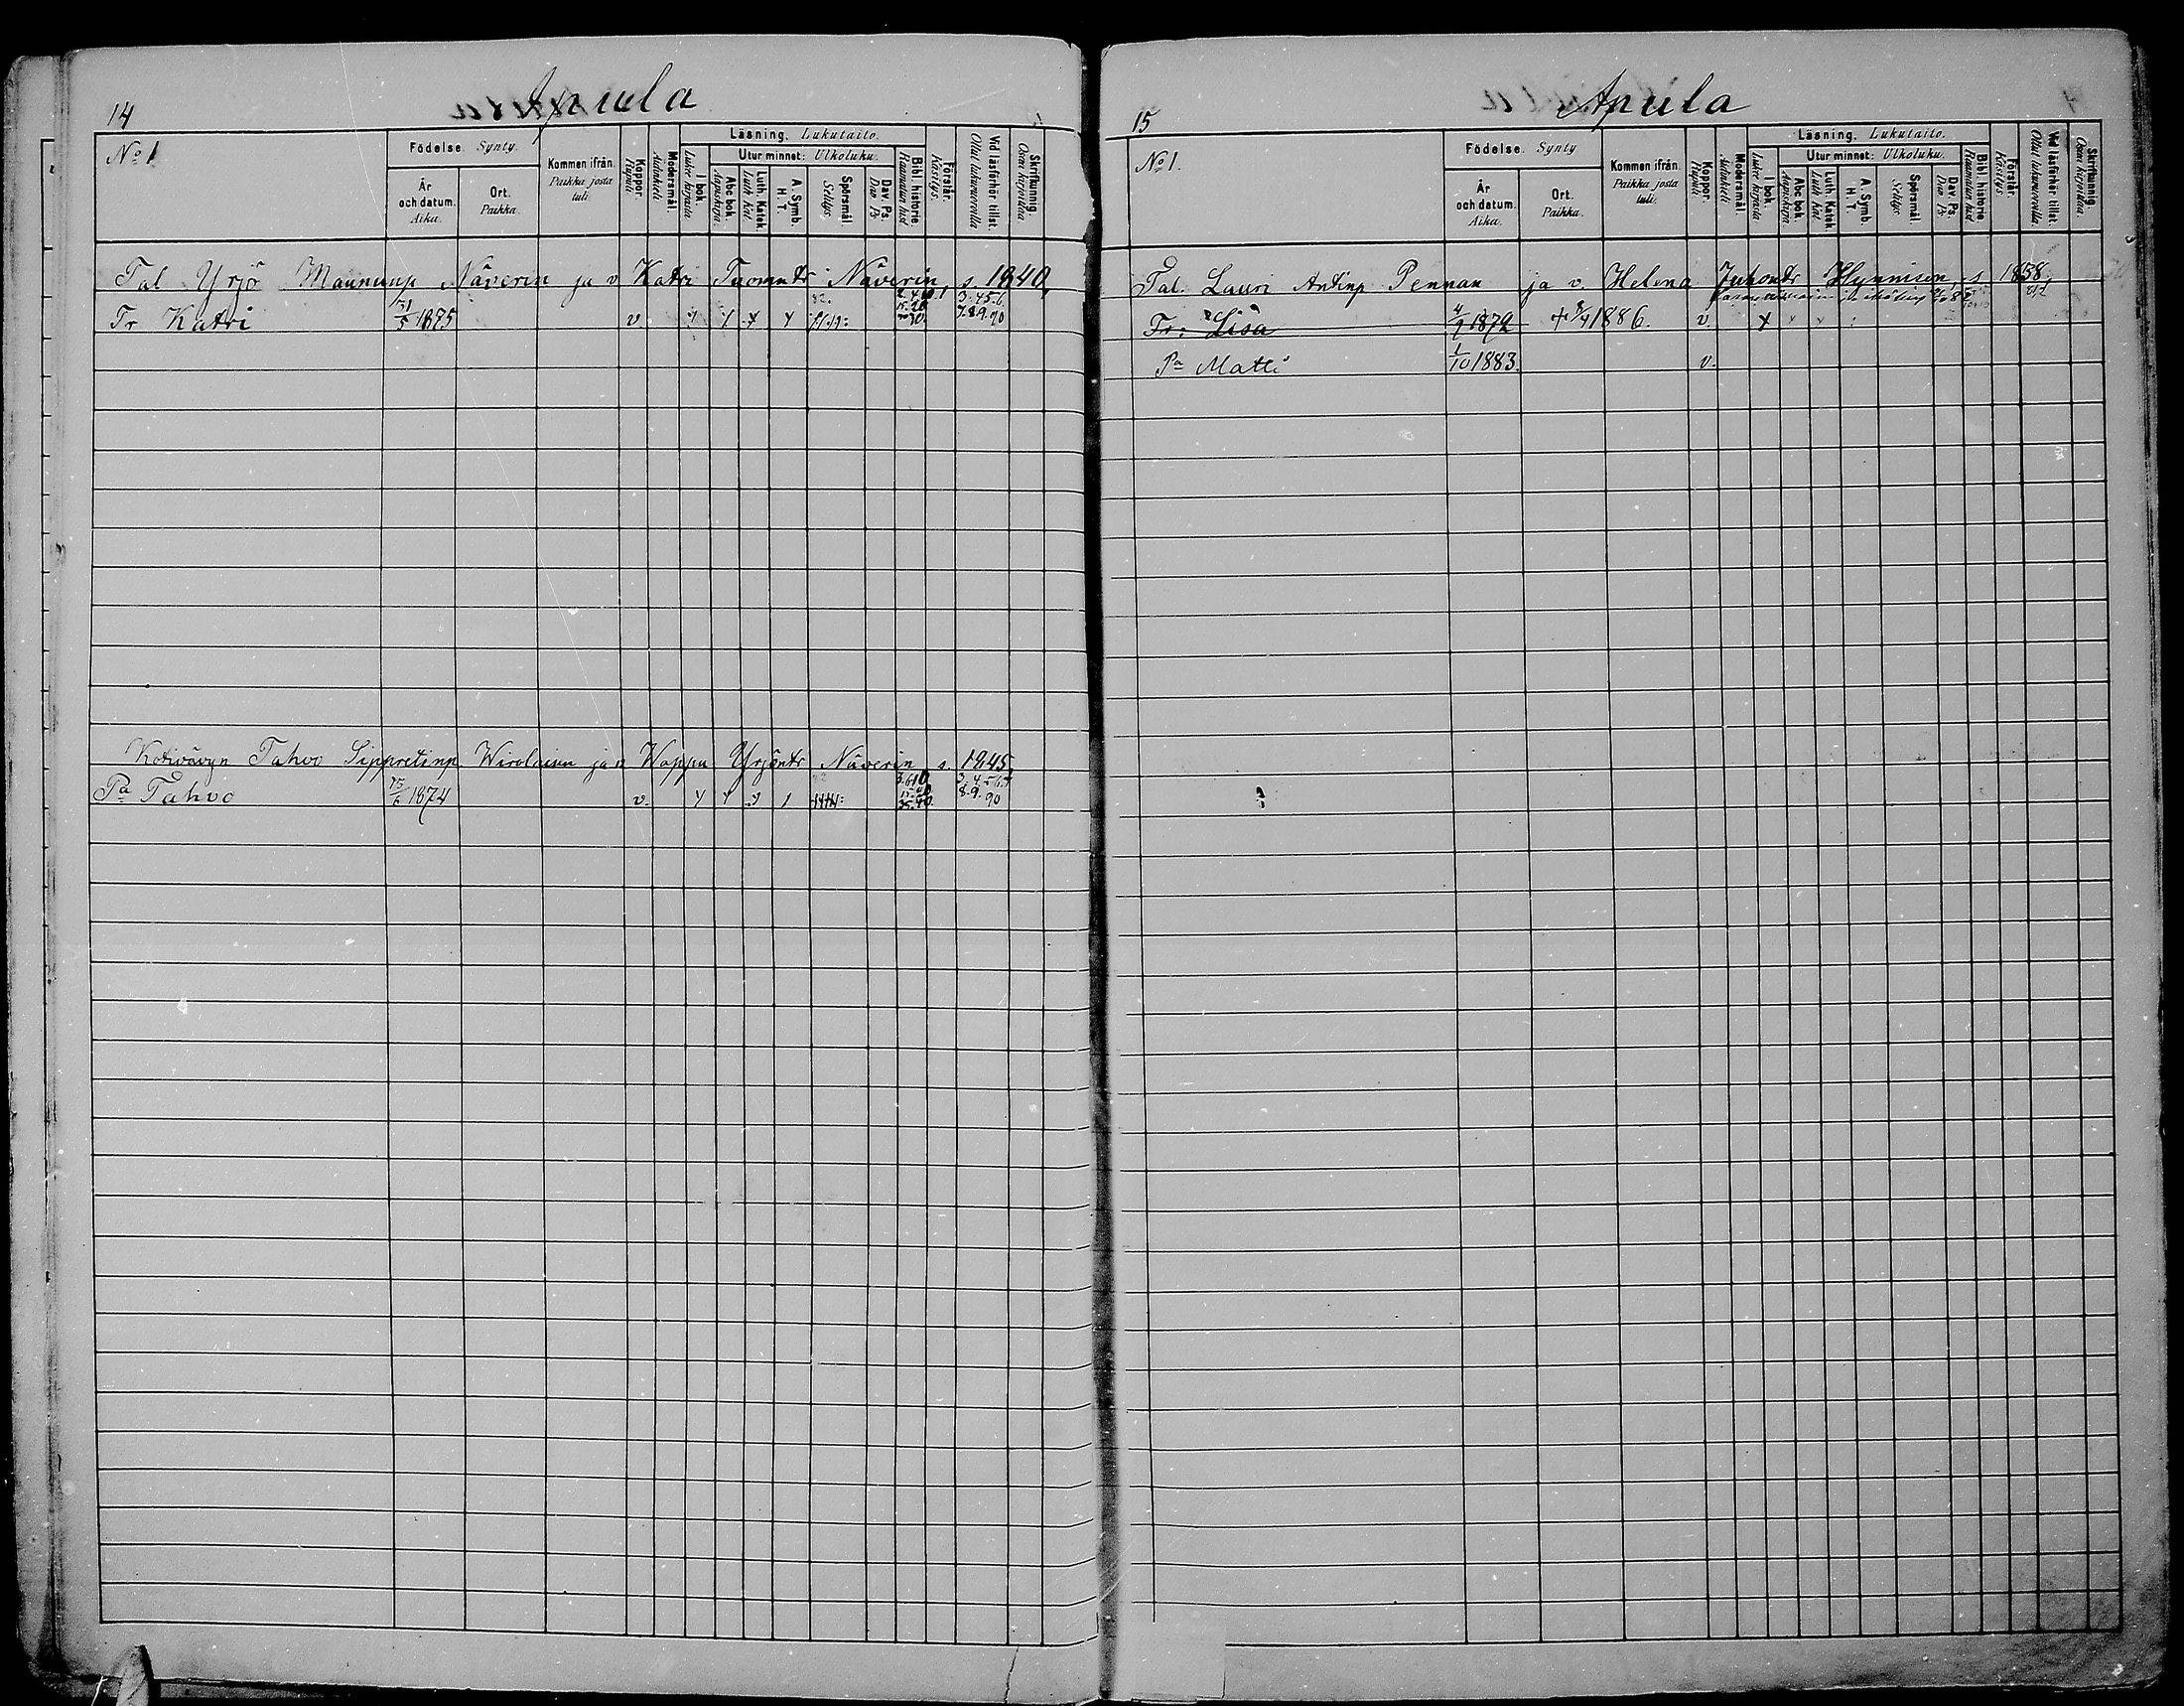 14
Apula
No 1
Födelse. Synty.
År och datum. Aika.
Ort. Paikka.
Kommen ifrån Paikka josta tuli
Koppor. Rupuli
Modersmål. Äidinkieli
Läsning. Lukutaito.
I bok. Lukee kirjasta
Utur minnet: Ulkoluku.
Abc bok. Aapiskirja.
Luth. Katek. Luth. Kat.
A. Symb. H. T.
Spörsmål. Selitys.
Dav. Ps. Dav. Ps.
Bibl. historie. Raamatun hist
Förstår. Käsitys.
Vid läsförhör tillst. Ollut lukuvuoroilla
Skrifkunnig. Osaa kirjoittaa.
Tal Yrjö Maununp Näverin ja v Katri Tuomntr Näverin, s. 1840,
Tr Katri 31/5 1875 v
3. 4 5 6
7. 8. 9. 90
Kotivävyn Tahvo Sippretinp Wirolaisen ja v Wappu Yrjöntr Näverin s. 1845,
Pa Tahvo 6 1874 v.
3. 4. 5 6. 7
8. 9. 90
15
Apula
No 1.
Födelse. Synty
År och datum. Aika.
Ort. Paikka.
Kommen ifrån Paikka josta tuli.
Koppor. Rupuli
Modersmål. Äidinkieli
Läsning. Lukutaito.
I bok. Lukee kirjasta
Utur minnet: Ulkoluku.
Abc bok. Aapiskirja.
Luth. Katek. Luth. Kat.
A. Symb. H. T.
Spörsmål. Selitys.
Dav. Ps. Dav. Ps.
Bibl. historie. Raamatun hist
Förstår. Käsitys.
Vid läsförhör tillst. Ollut lukuvuoroilla.
Skrifkunnig. Osaa kirjoittaa.
Tal. Lauri Antinp Pennan ja v. Helena Juhontr Hynnisen, s 1858.
Tr: Lisa 4/9 1872 + 3/4 1886. v.
Pa Matti 1/10 1883. v.